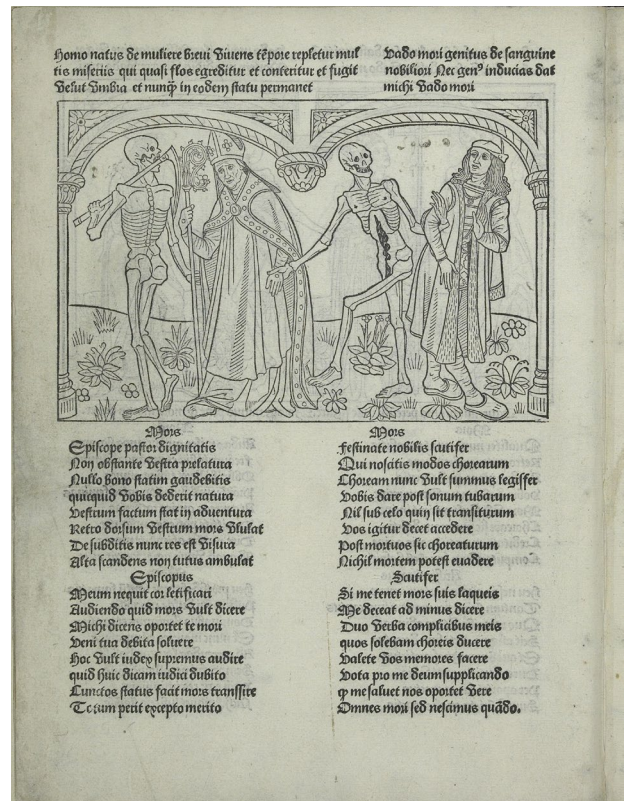 Homo natus de muliere breui viuens tẽpore repletur mul
tis miseriis qui quasi flos egreditur et conteritur et fugit
velut vmbra et nunq̃ in eodem statu permanet
Uado mori genitus de sanguine
nobiliori Nec genꝰ inducias dat
michi vado mori
Mors
Episcope pastor dignitatis
Non obstante vestra prelatura
Nullo bono statim gaudebitis
quicquid vobis dederit natura
Vestrum factum stat in aduentura
Retro dorsum vestrum mors vlulat
De subditis nunc res est visura
Alta scandens non tutus ambulat
Episcopus
Meum nequit cor letificari
Audiendo quid mors vult dicere
Michi dicens oportet te mori
Veni tua debita soluere
Hoc vult iudex supremus audire
quid huic dicam iudici dubito
Cunctos status facit mors transsire
Totum perit excepto merito
Mors
Festinate nobilis scutifer
Qui noscitis modos chorearum
Choream nunc vult summus legiffer
Vobis dare post sonum tubarum
Nil sub celo quin sit transiturum
Vos igitur decet accedere
Post mortuos sic choreaturum
Nichil mortem potest euadere
Scutifer
Si me tenet mors suis laqueis
Me deceat ad minus dicere
Duo verba complicibus meis
quos solebam choreis ducere
Valete vos memores facere
Vota pro me deum supplicando
ꝙ me saluet nos oportet vere
Omnes mori sed nescimus quãdo.